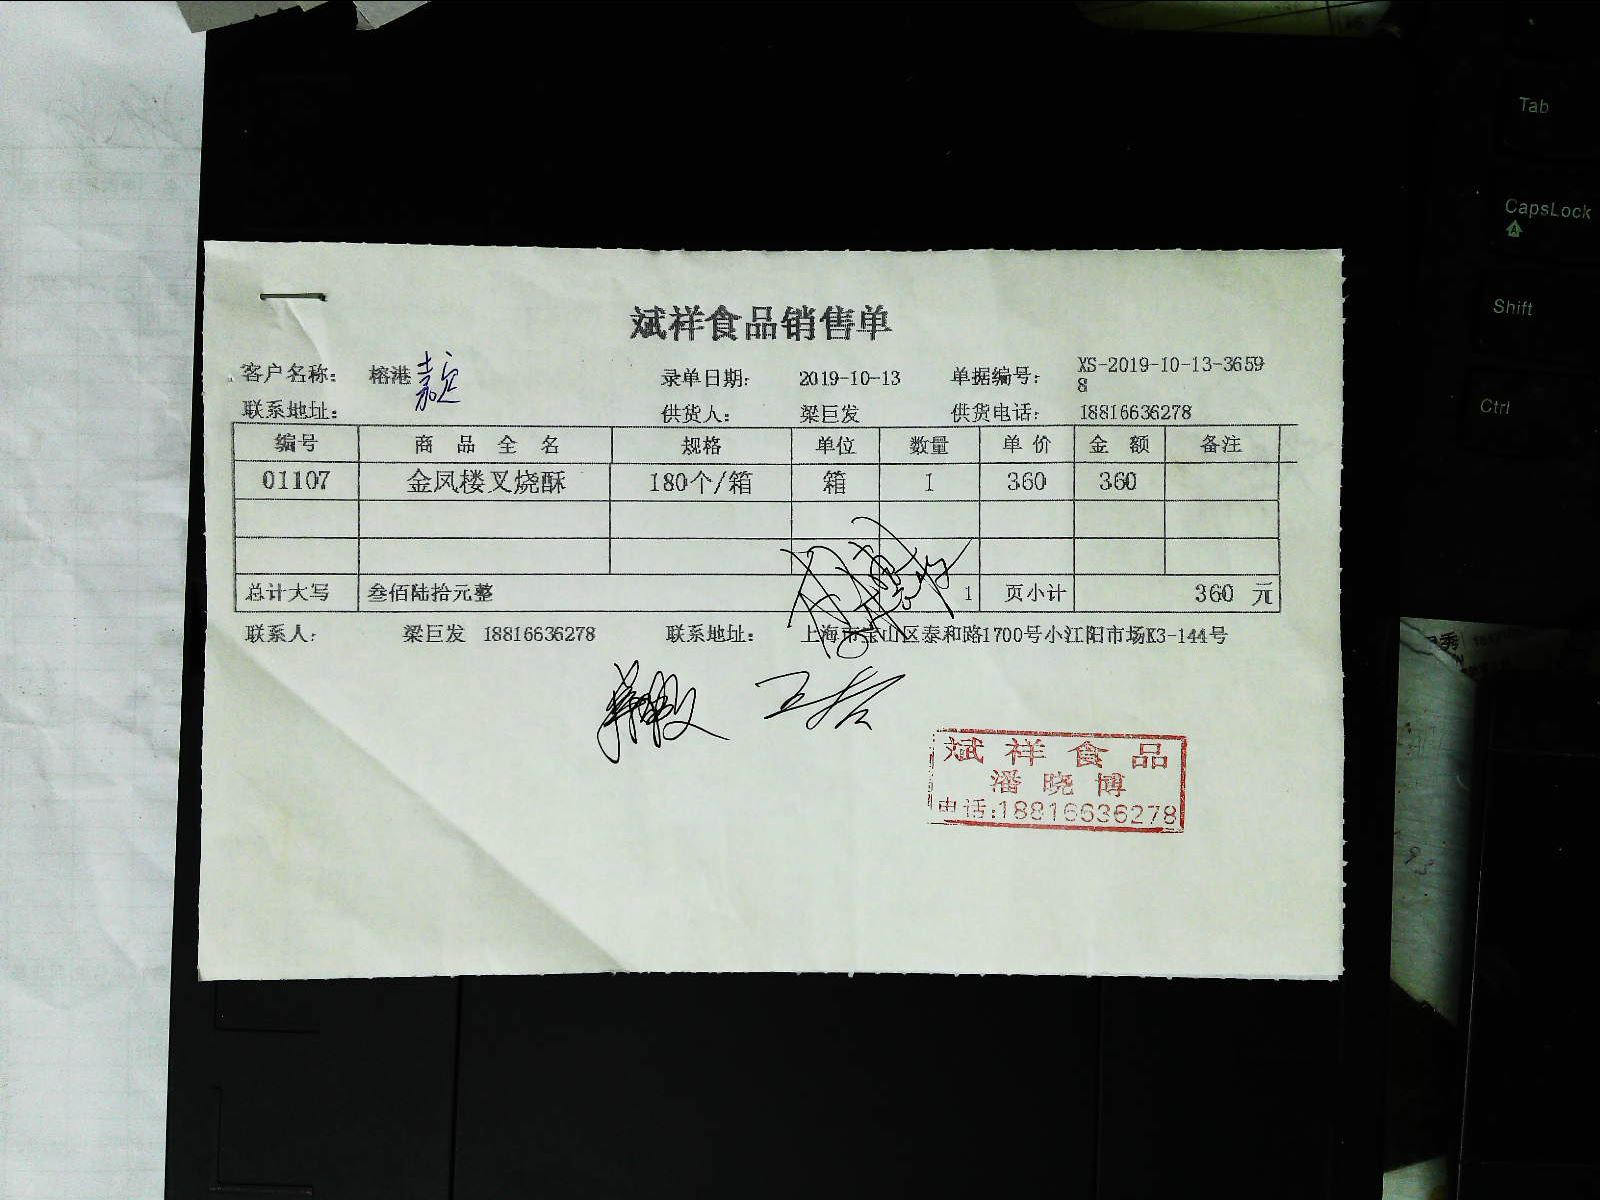 斌祥食品销售单
客户名称: 榕港 嘉定 录单日期: 2019-10-13 单据编号: XS-2019-10-13-36598
联系地址: 供货人: 梁巨发 供货电话: 18816636278
编号 商品全名 规格 单位 数量 单价 金额 备注
01107 金凤楼叉烧酥 180个/箱 箱 1 360 360
总计大写 叁佰陆拾元整 1 页小计 360 元
联系人: 梁巨发 18816636278 联系地址: 上海市宝山区泰和路1700号小江阳市场K3-144号
斌祥食品
潘晓博
电话:18816636278
Tab
CapsLock
Shift
Ctrl